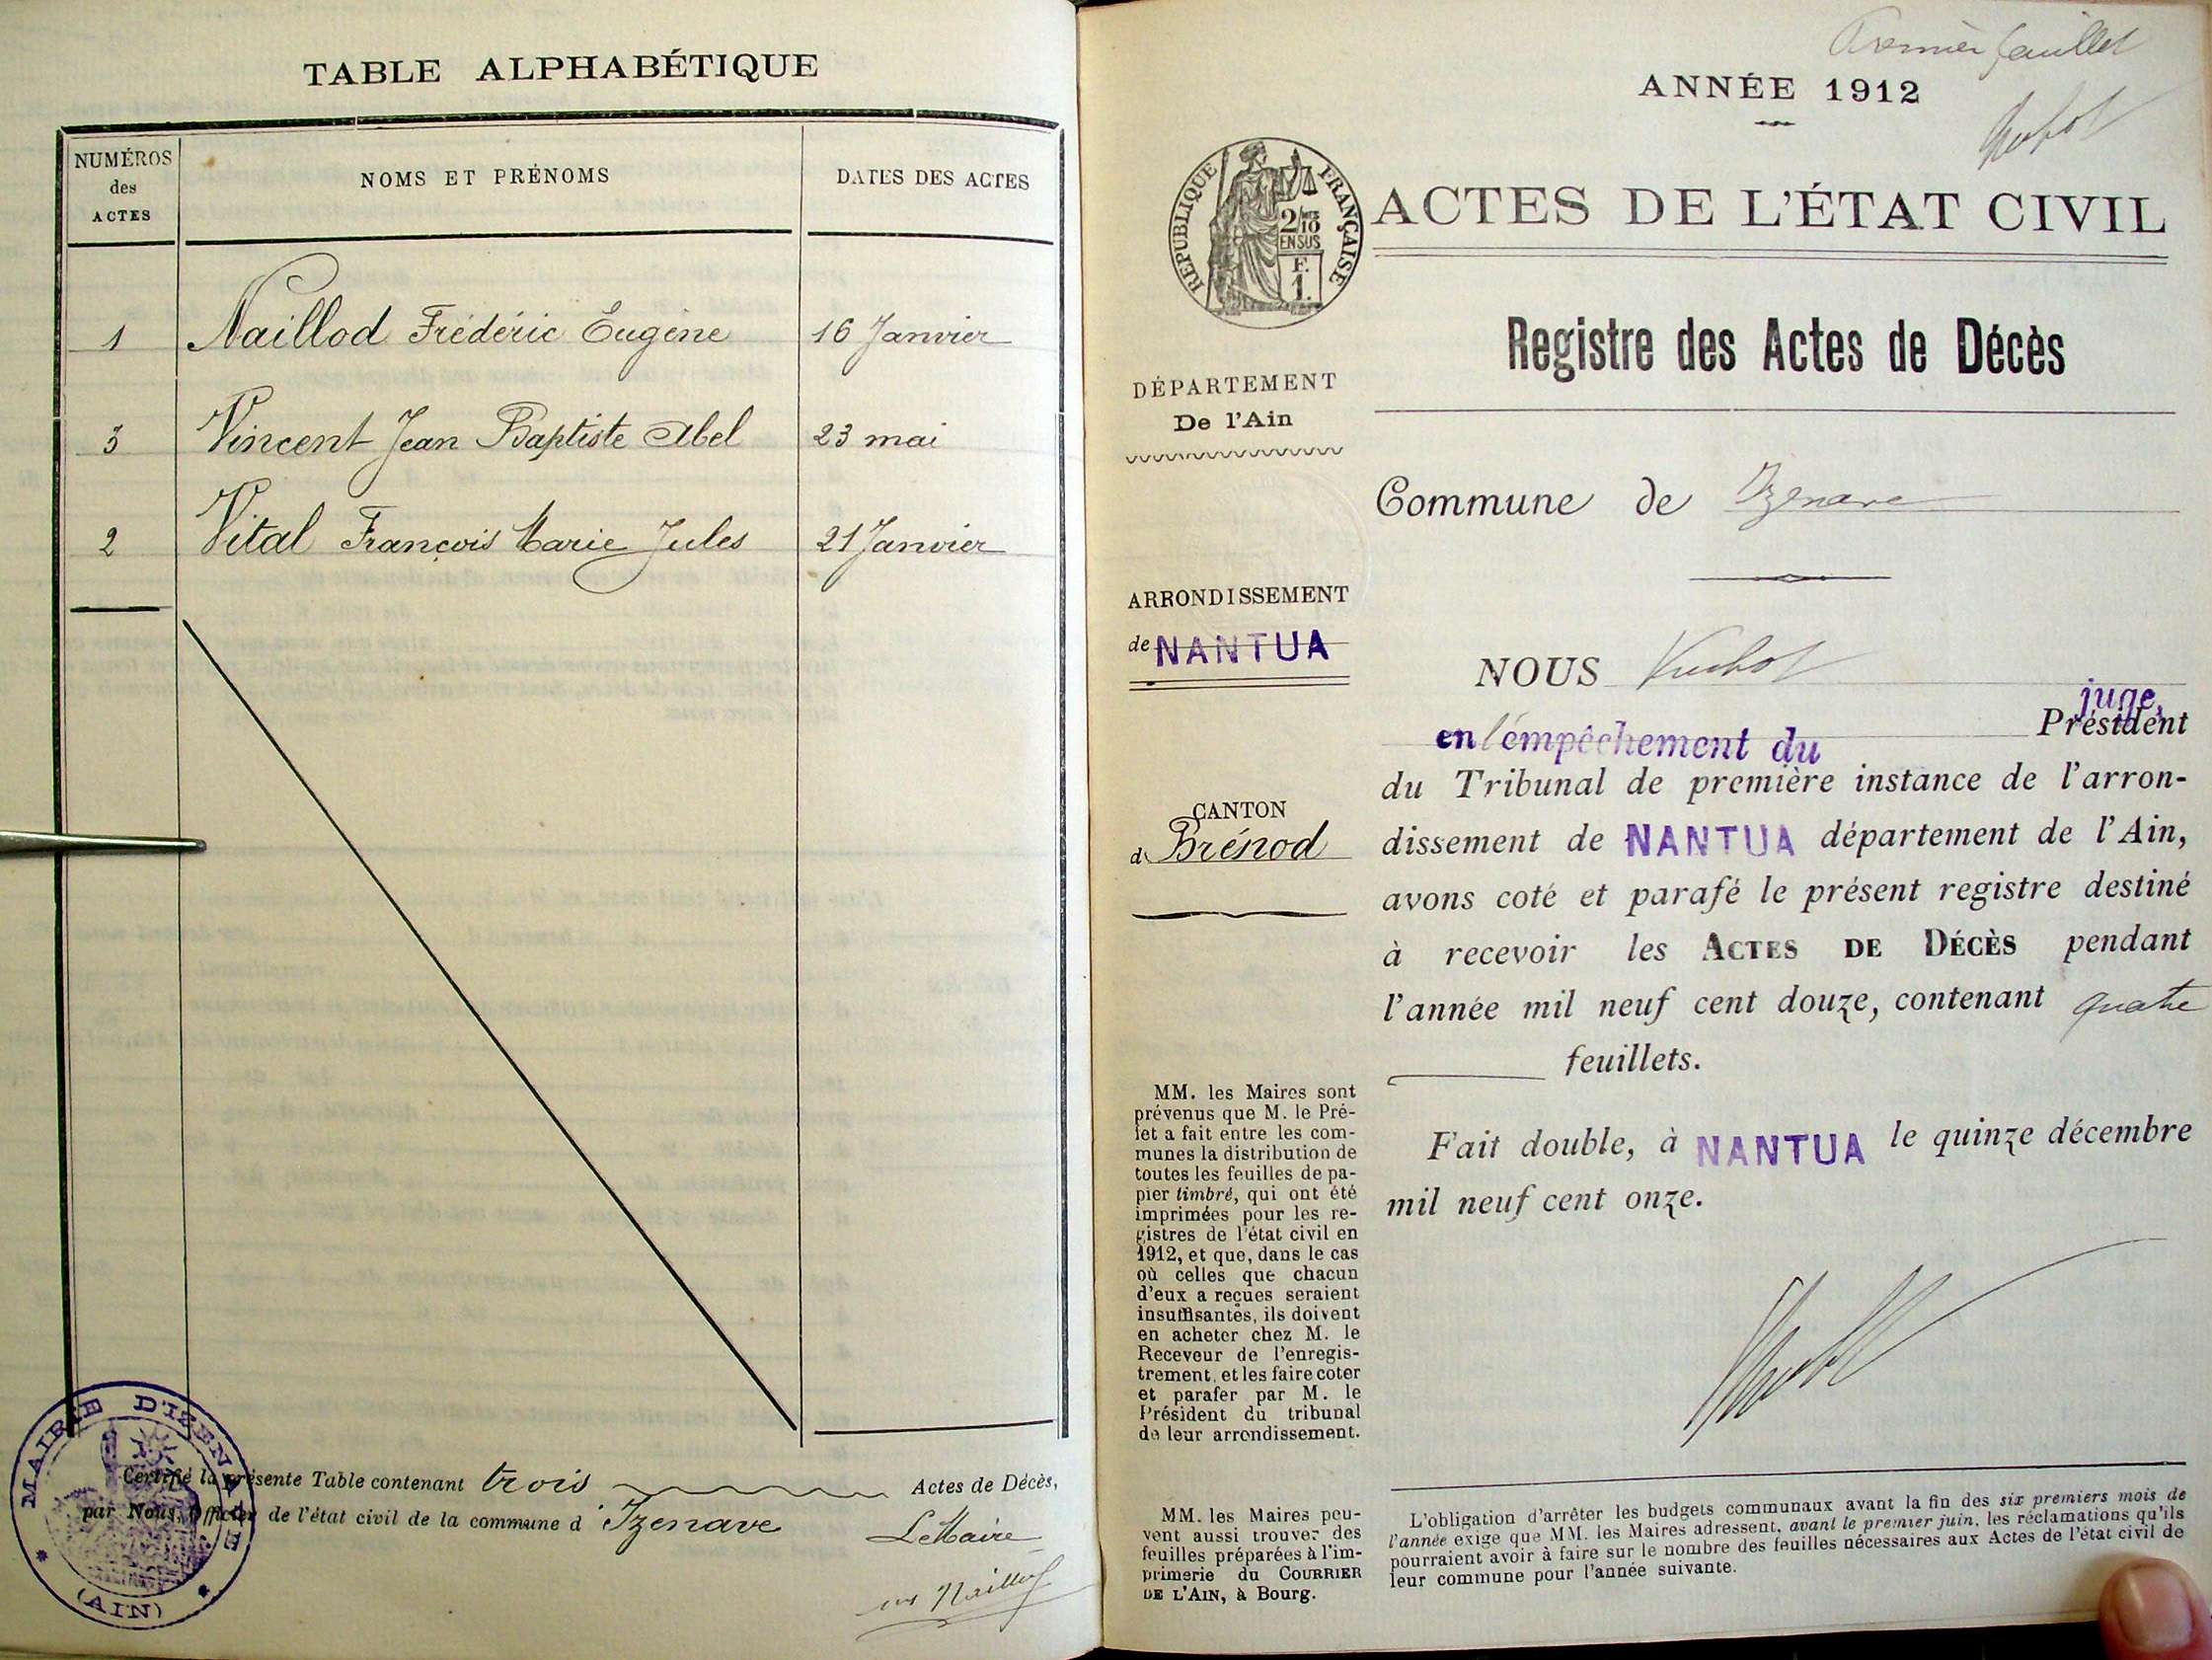 TABLE ALPHABÉTIQUE
NUMÉROS
des
ACTES
NOMS ET PRÉNOMS
DATES DES ACTES
1 Naillod Frédéric Eugène 16 Janvier
3 Vincent Jean Baptiste Abel 23 mai
2 Vital François Marie Jules 21 Janvier
Certifié la présente Table contenant trois Actes de Décès,
par Nous, Officier de l'état civil de la commune d'Izenave
Le Maire
Naillod
MAIRIE D'IZENAVE
(AIN)
Premier feuillet
ANNÉE 1912
RÉPUBLIQUE FRANÇAISE
2/10
EN SUS
F.
1.
ACTES DE L'ÉTAT CIVIL
Registre des Actes de Décès
DÉPARTEMENT
De l'Ain
Commune de Izenave
ARRONDISSEMENT
de NANTUA
CANTON
d Brénod
NOUS
juge,
en l'empêchement du Président
du Tribunal de première instance de l'arron-
dissement de NANTUA département de l'Ain,
avons coté et parafé le présent registre destiné
à recevoir les ACTES DE DÉCÈS pendant
l'année mil neuf cent douze, contenant quatre
feuillets.
Fait double, à NANTUA le quinze décembre
mil neuf cent onze.
MM. les Maires sont
prévenus que M. le Pré-
fet a fait entre les com-
munes la distribution de
toutes les feuilles de pa-
pier timbré, qui ont été
imprimées pour les re-
gistres de l'état civil en
1912, et que, dans le cas
où celles que chacun
d'eux a reçues seraient
insuffisantes, ils doivent
en acheter chez M. le
Receveur de l'enregis-
trement, et les faire coter
et parafer par M. le
Président du tribunal
de leur arrondissement.
MM. les Maires peu-
vent aussi trouver des
feuilles préparées à l'im-
primerie du COURRIER
DE L'AIN, à Bourg.
L'obligation d'arrêter les budgets communaux avant la fin des six premiers mois de
l'année exige que MM. les Maires adressent, avant le premier juin, les réclamations qu'ils
pourraient avoir à faire sur le nombre des feuilles nécessaires aux Actes de l'état civil de
leur commune pour l'année suivante.